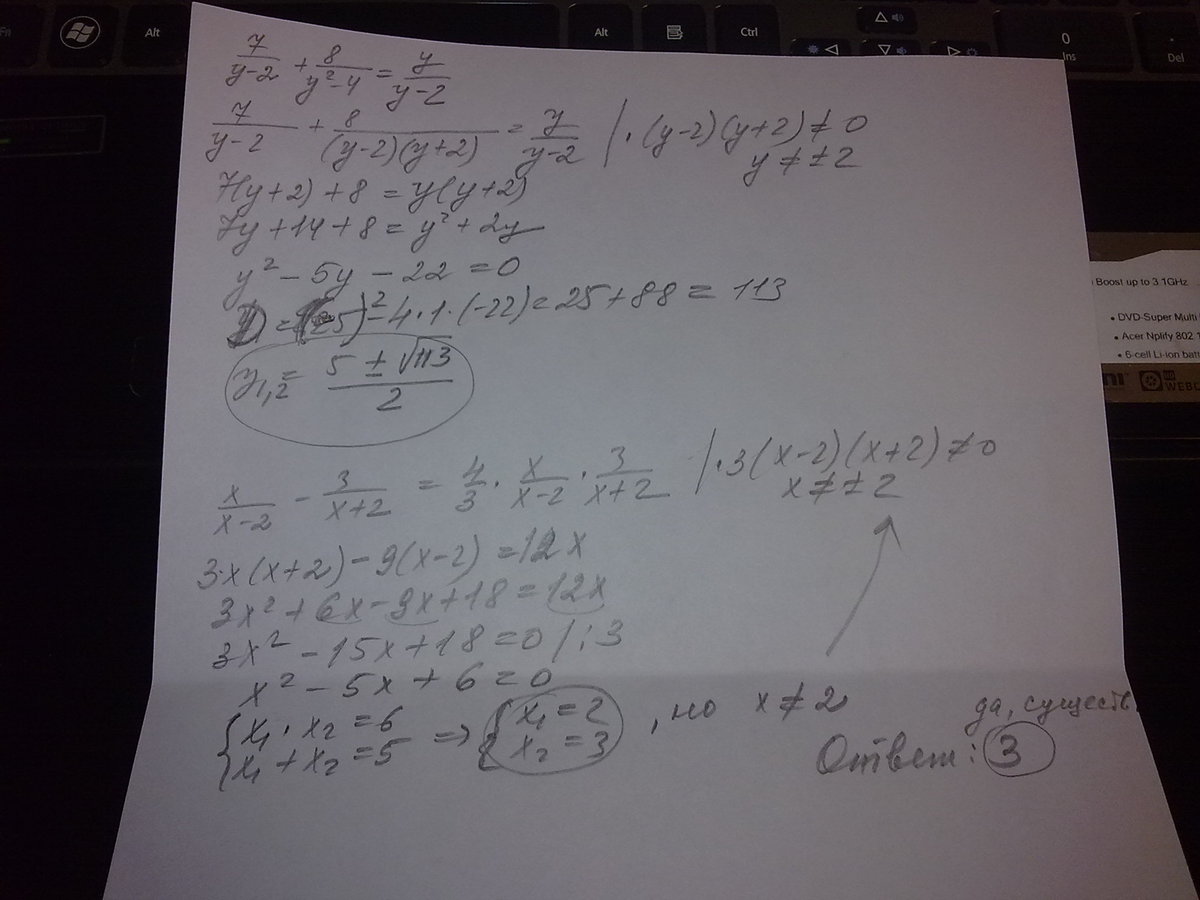 Fn Alt Alt Ctrl 0 Ins Del
7/(y-2) + 8/(y²-4) = y/(y-2)
7/(y-2) + 8/((y-2)(y+2)) = y/(y-2) |·(y-2)(y+2) ≠ 0
y ≠ ±2
7(y+2) + 8 = y(y+2)
7y + 14 + 8 = y² + 2y
y² - 5y - 22 = 0
D = (-5)² - 4·1·(-22) = 25 + 88 = 113
y₁,₂ = (5 ± √113)/2
x/(x-2) - 3/(x+2) = 4/3 · x/(x-2) · 3/(x+2) |·3(x-2)(x+2) ≠ 0
x ≠ ±2
3·x(x+2) - 9(x-2) = 12x
3x² + 6x - 9x + 18 = 12x
3x² - 15x + 18 = 0 |:3
x² - 5x + 6 = 0
{x₁·x₂ = 6
{x₁ + x₂ = 5 => {x₁ = 2
{x₂ = 3 , но x ≠ 2
да, существ.
Ответ: 3
Boost up to 3.1GHz
• DVD-Super Multi
• Acer Nplify 802.1
• 6-cell Li-ion batt